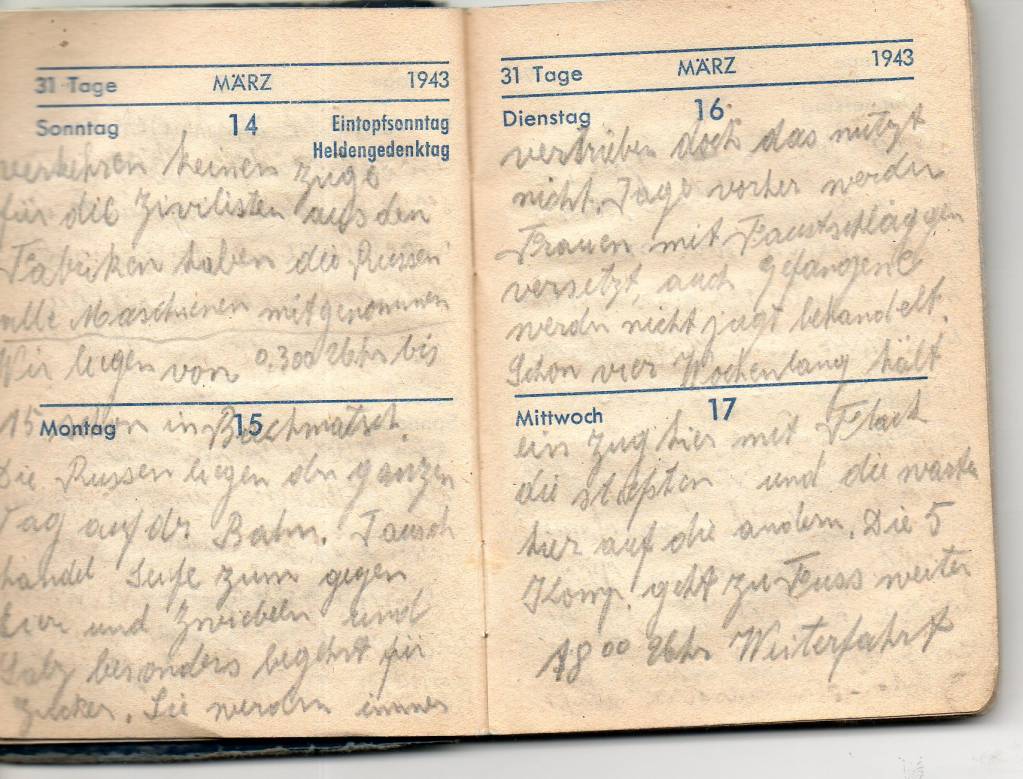 31 Tage MÄRZ 1943
Sonntag 14 Eintopfsonntag
Heldengedenktag
verkehren keinen Züge
für die Zivilisten aus den
Fabriken haben die Russen
alle Maschienen mitgenommen
Wir liegen von 0,300 Uhr bis
15 schon in Bachmatsch.
Montag 15
Die Russen liegen den ganzen
Tag auf dr. Bahn. Tausch
handel Seife zum gegen
Eier und Zwiebeln und
Salz besonders begehrt für
Zucker. Sie werden immer
31 Tage MÄRZ 1943
Dienstag 16
vertrieben doch das nützt
nicht. Tage vorher werden
Frauen mit Faustschläggen
versetzt, auch gefangene
werdn nicht jugt behandelt.
Schon vier Wochenlang hält
Mittwoch 17
ein Zug hier mit Flack
die und die warten
hier auf die andern. Die 5
Komp. geht zu Fuss weiter
18 00 Uhr Weiterfahrt